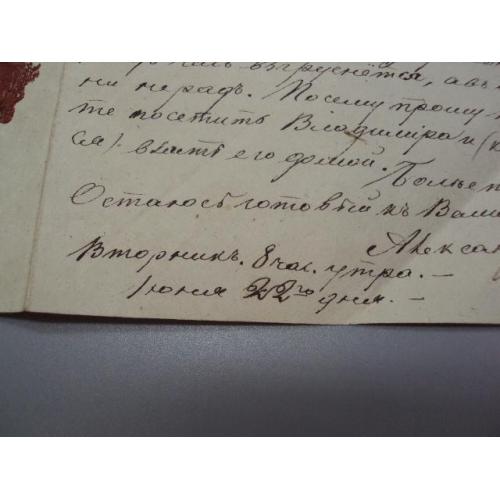 взгруснётся, а въ
ни не радъ. Посему прошу
те посетить Владимира и (к
ся) взять его домой.
Остаюсь готовый къ Ваши
Алексан
Вторникъ. 8 час. утра. —
Июня 22го дня. —